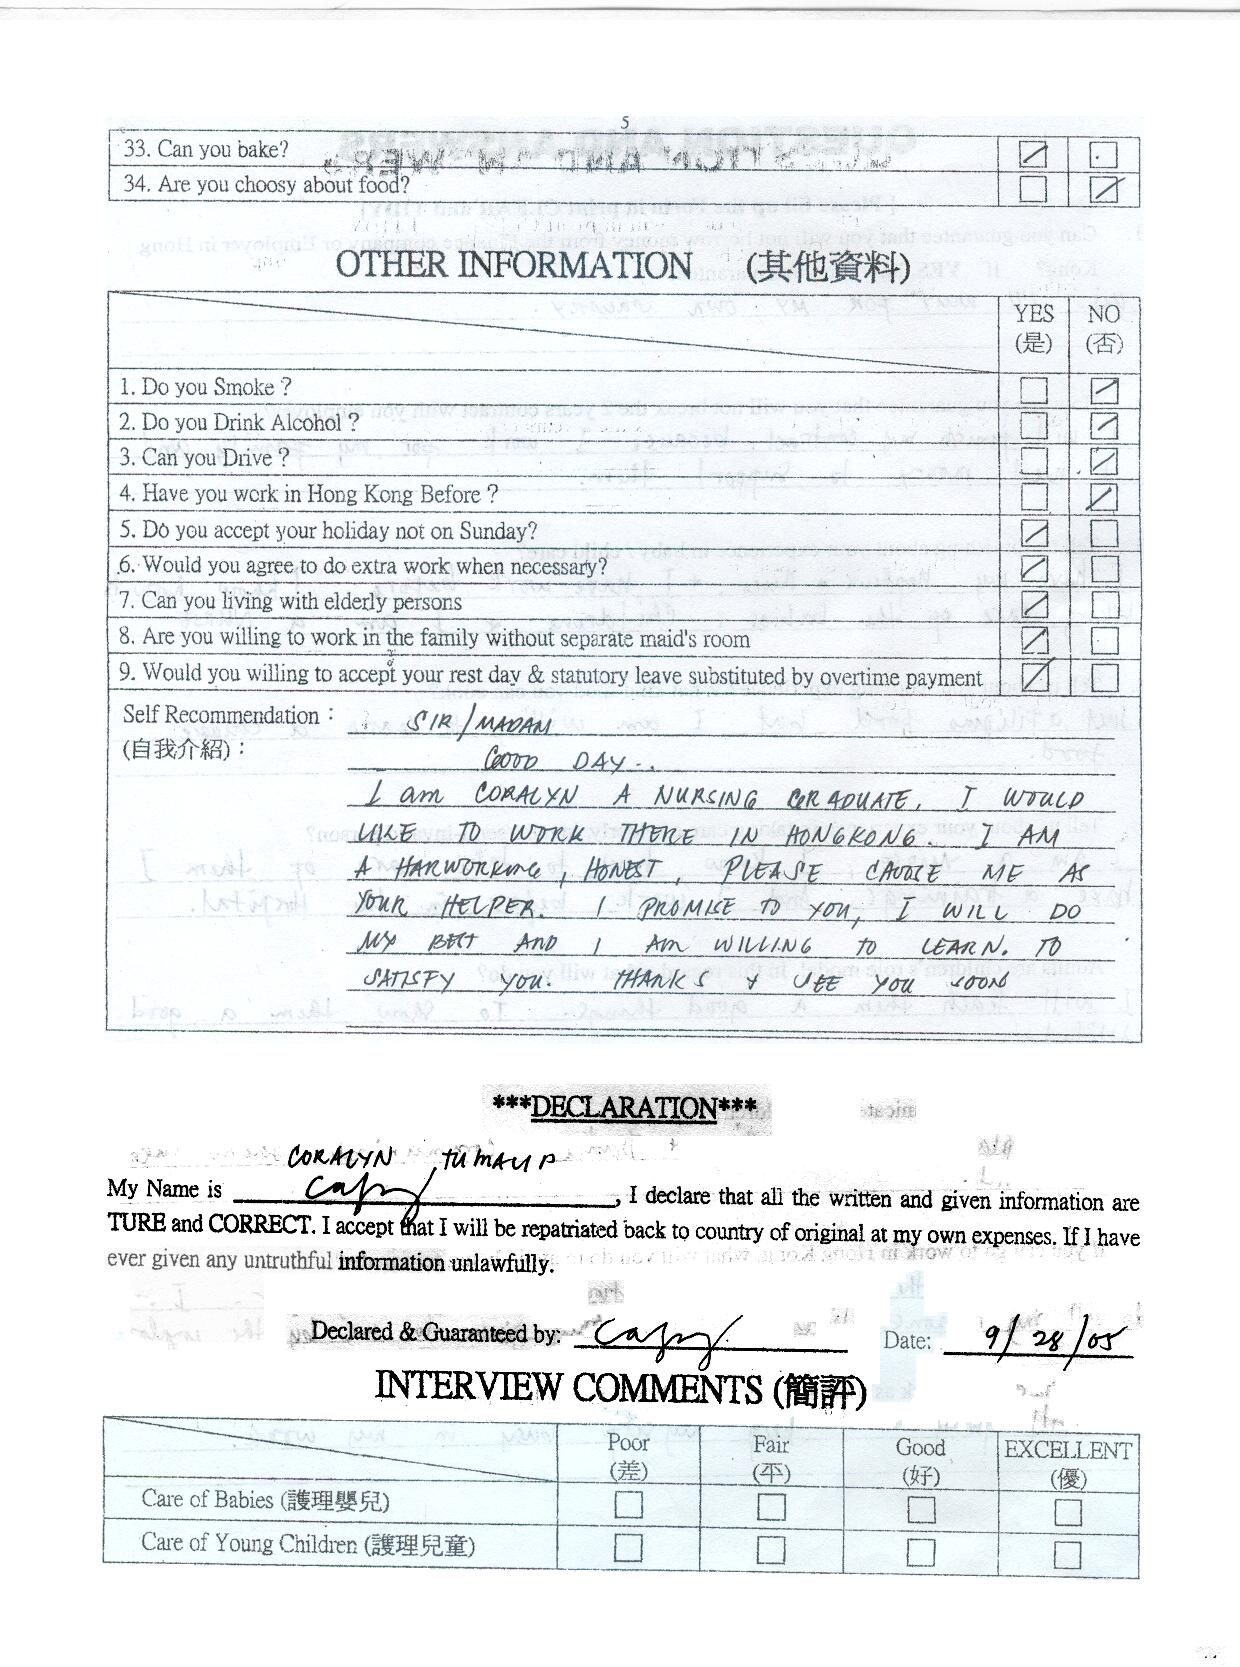 5
33. Can you bake?
34. Are you choosy about food?
OTHER INFORMATION (其他資料)
YES NO
(是) (否)
1. Do you Smoke ?
2. Do you Drink Alcohol ?
3. Can you Drive ?
4. Have you work in Hong Kong Before ?
5. Do you accept your holiday not on Sunday?
6. Would you agree to do extra work when necessary?
7. Can you living with elderly persons
8. Are you willing to work in the family without separate maid's room
9. Would you willing to accept your rest day & statutory leave substituted by overtime payment
Self Recommendation : SIR/MADAM
(自我介紹) : GOOD DAY..
I am CORALYN A NURSING GRADUATE. I WOULD
LIKE TO WORK THERE IN HONGKONG. I AM
A HARWORKING, HONEST, PLEASE CHOOSE ME AS
YOUR HELPER. I PROMISE TO YOU, I WILL DO
MY BEST AND I AM WILLING TO LEARN. TO
SATISFY YOU. THANKS & SEE YOU SOON
***DECLARATION***
CORALYN TUMALIP
My Name is , I declare that all the written and given information are
TURE and CORRECT. I accept that I will be repatriated back to country of original at my own expenses. If I have
ever given any untruthful information unlawfully.
Declared & Guaranteed by: Date: 9/28/05
INTERVIEW COMMENTS (簡評)
Poor Fair Good EXCELLENT
(差) (平) (好) (優)
Care of Babies (護理嬰兒)
Care of Young Children (護理兒童)